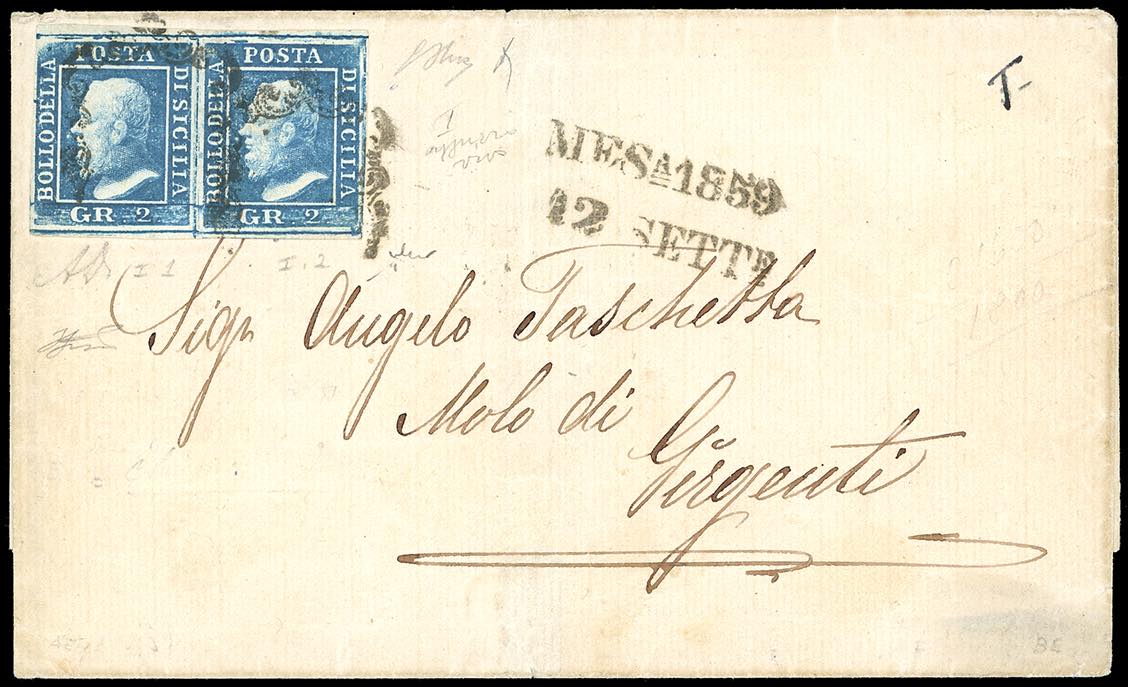 POSTA
BOLLO DELLA
DI SICILIA
GR. 2
POSTA
BOLLO DELLA
DI SICILIA
GR. 2
MESA 1859
12 SETTE
T.
I 1
I. 2
Sigr Angelo Paschetta
Molo di
Girgenti